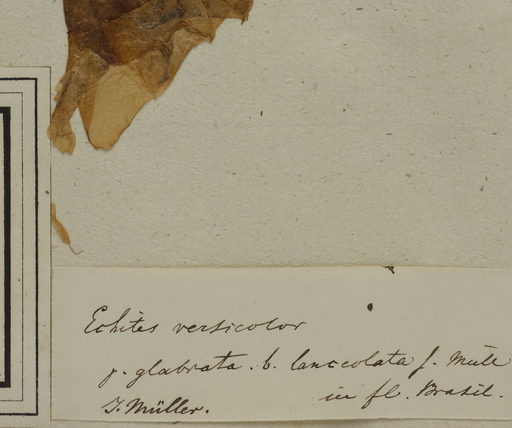 Echites versicolor
γ. glabrata. b. lanceolata J. Müll
J. Müller. in fl. Brasil.